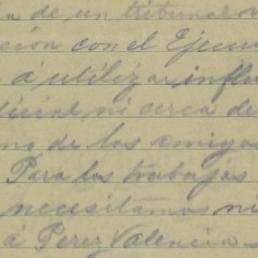 a de un tribunal
ción con el Ejecu
á utilizar influ
dicial ni cerca de
no de los amigos
Para los trabajos
necesitamos ni
á Perez Valencia